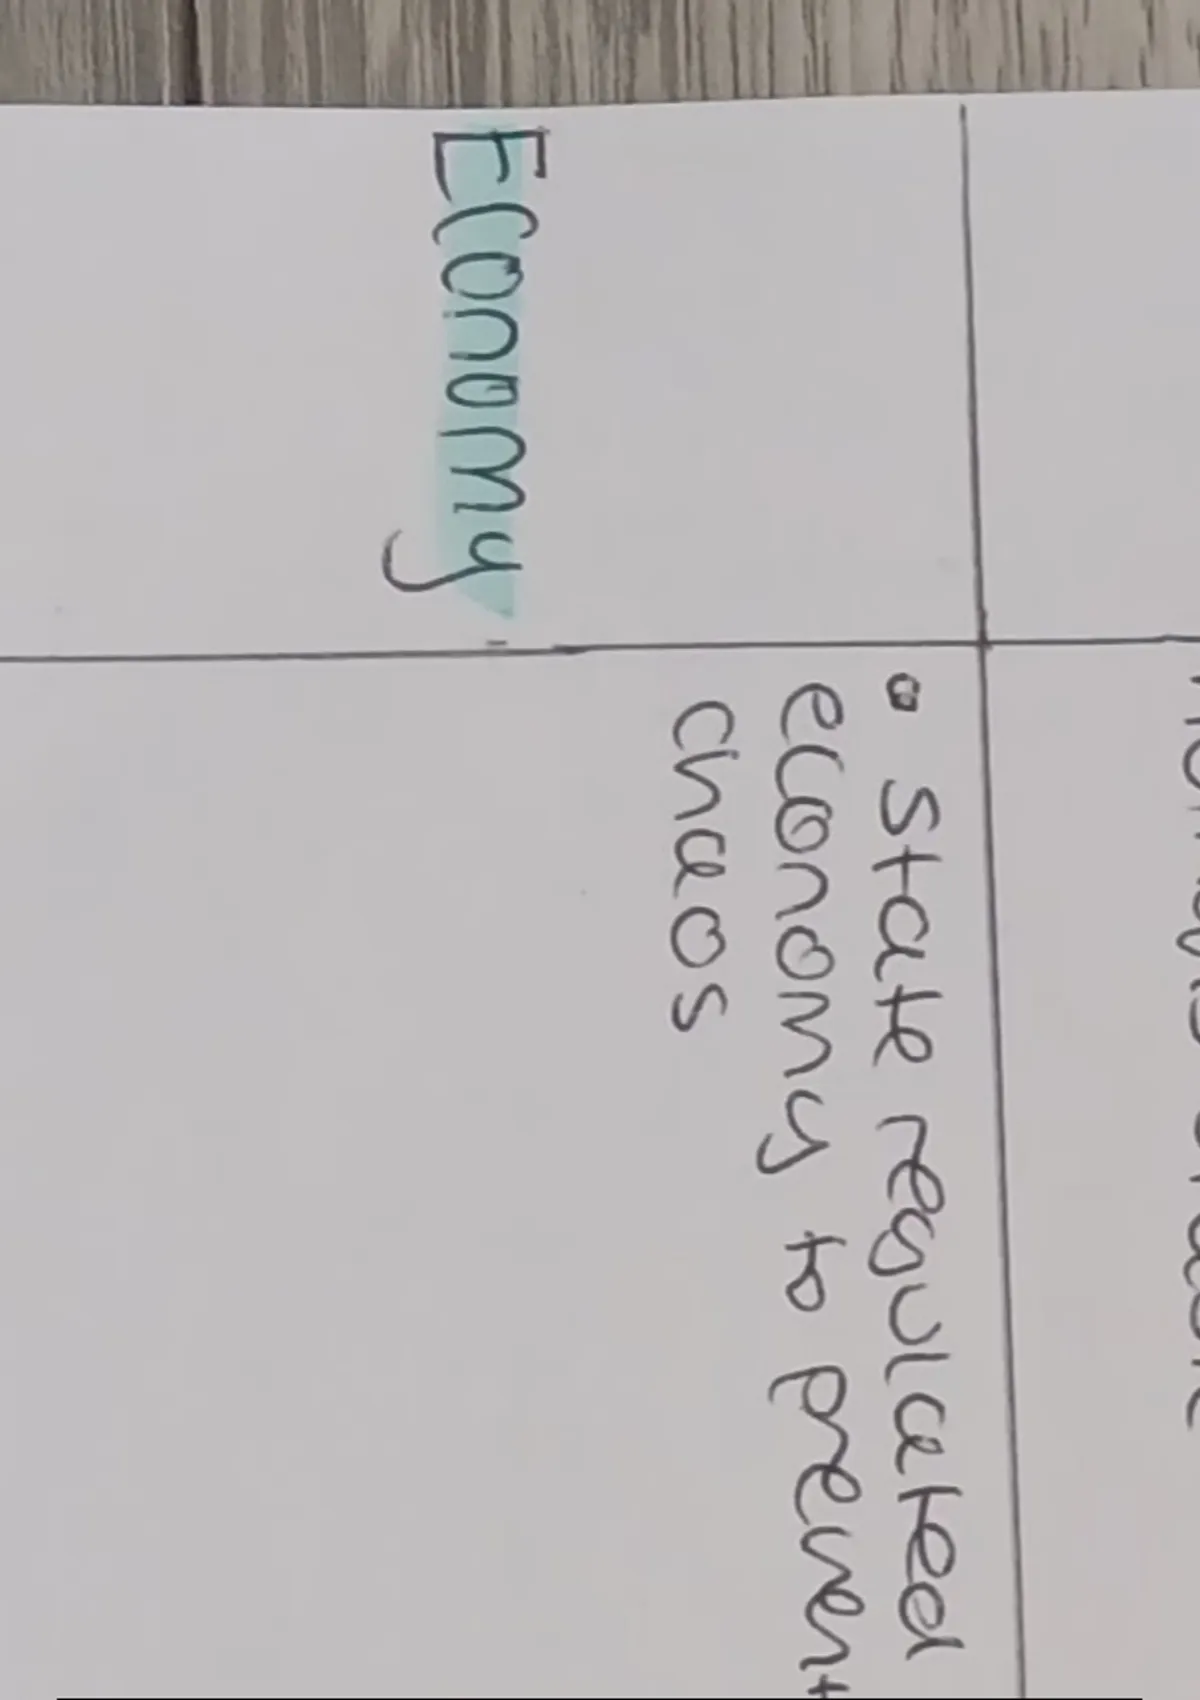 Economy
• State regulated
economy to prevent
chaos